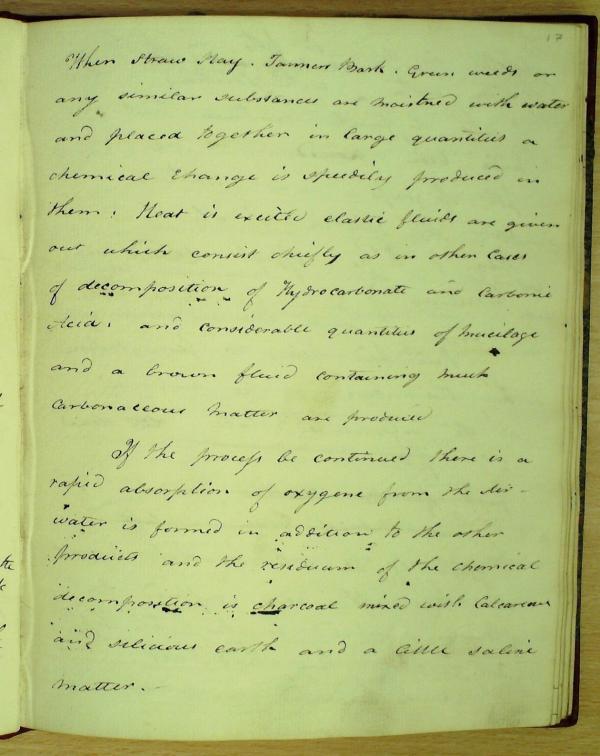 17
When Straw Hay. Tanners Bark. Green weeds or
any similar substances are moistned with water
and placed together in large quantities a
chemical change is speedily produced in
them: Heat is excited elastic fluids are given
out which consist chiefly as in other Cases
of decomposition of Hydrocarbonate and Carbonic
Acid: and considerable quantities of Mucilage
and a brown fluid containing much
Carbonaceous Matter are produced
If the process be continued there is a
rapid absorption of oxygene from the Air -
water is formed in addition to the other
products and the residuum of the chemical
decomposition is charcoal mixed with Calcareous
and silicious earth and a little saline
matter. -